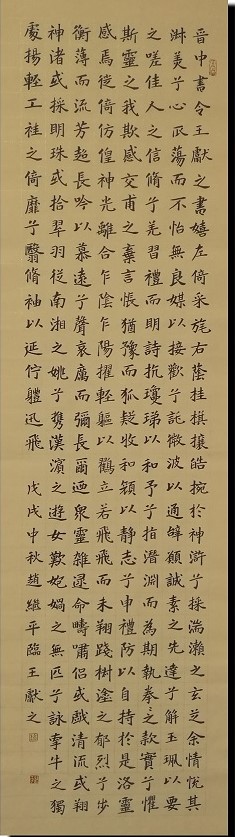 晉中書令王獻之書嬉左倚采旄右蔭桂旗攘皓捥於神滸兮採湍瀨之玄芝余情悅其
淑美兮心振蕩而不怡無良媒以接歡兮託微波以通辭願誠素之先達兮解玉珮以要
之嗟佳人之信脩兮羌習禮而明詩抗瓊珶以和予兮指潛淵而為期執拳〻之款實兮懼
斯靈之我欺感交甫之棄言悵猶豫而狐疑收和顏以静志兮申禮防以自持於是洛靈
感焉徙倚仿偟神光離合乍陰乍陽擢輕軀以鸖立若將飛而未翔踐椒塗之郁烈兮步
衡薄而流芳超長吟以慕遠兮聲哀厲而彌長爾迺衆靈雜遝命疇嘯侶或戲清流或翔
神渚或採明珠或拾翠羽從南湘之姚兮攜漢濱之遊女歎炮媧之無匹兮詠牽牛之獨
處揚輕工袿之倚靡兮翳脩袖以延佇軆迅飛 戊戌中秋趙繼平臨王獻之